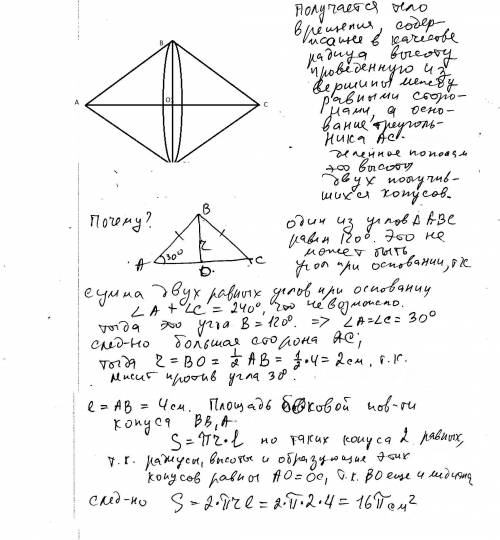 B
A
O
C
Получается тело
вращения, содер-
жащее в качестве
радиуса высоту
проведенную из
вершины между
равными сторо-
нами, а осно-
вание треуголь-
ника AC.
деленное пополам
это высоты
двух получив-
шихся конусов.
Почему?
B
A
30°
r
O.
C
один из углов Δ ABC
равен 120°. Это не
может быть
угол при основании, т.к
сумма двух равных углов при основании
∠A + ∠C = 240°, что невозможно.
тогда это угол B = 120°. => ∠A=∠C = 30°
след-но большая сторона AC;
тогда r = BO = 1/2 AB = 1/2·4 = 2см, т.к.
лежит против угла 30°.
l = AB = 4см. Площадь боковой пов-ти
конуса BB₁A
S = πr·l но таких конуса 2 равных,
т.к. радиусы, высоты и образующие этих
конусов равны AO=OC, т.к. BO еще и медиана
след-но S = 2·πrl = 2·π·2·4 = 16π см²